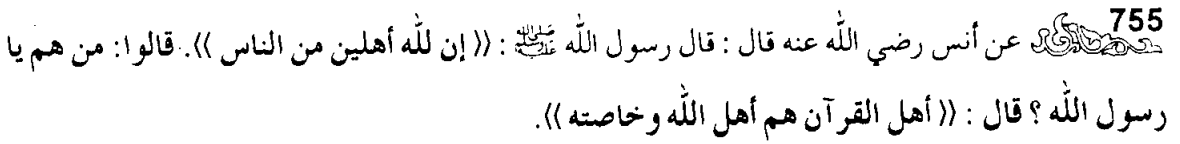 755 عن أنس رضي الله عنه قال : قال رسول الله ﷺ : (( إن لله أهلين من الناس )). قالوا : من هم يا
رسول الله ؟ قال : (( أهل القرآن هم أهل الله وخاصته )).